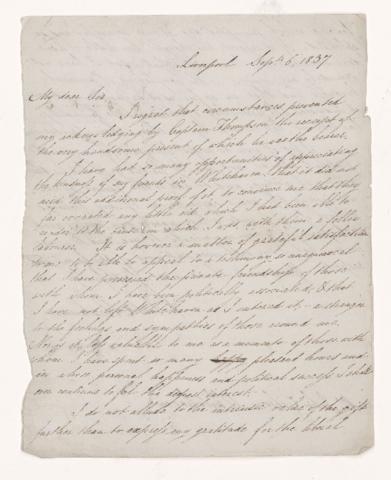 Liverpool Sepr. 6, 1837
My dear Sir
I regret that circumstances prevented
my acknowledging by Captain Thompson the receipt of
the very handsome present of which he was the bearer.
I have had so many opportunities of appreciating
the kindness of my friends in Whitehaven that it did not
need this additional proof of it to convince me that they
far overrated any little aid which I had been able to
render to the cause in which I was with them a fellow
labourer. It is however a matter of grateful satisfaction
to me to be able to appeal to a testimony so unequivocal
that I have preserved the private friendships of those
with whom I have been politically associated, & that
I have not left Whitehaven as I entered it, a stranger
to the feelings and sympathies of those around me.
Nor is it less valuable to me as a memento of those with
whom I have spent so many pleasant hours and
in whose personal happiness and political success I shall
ever continue to feel the deepest interest.
I do not allude to the intrinsic value of the gift
further than to express my gratitude for the liberal